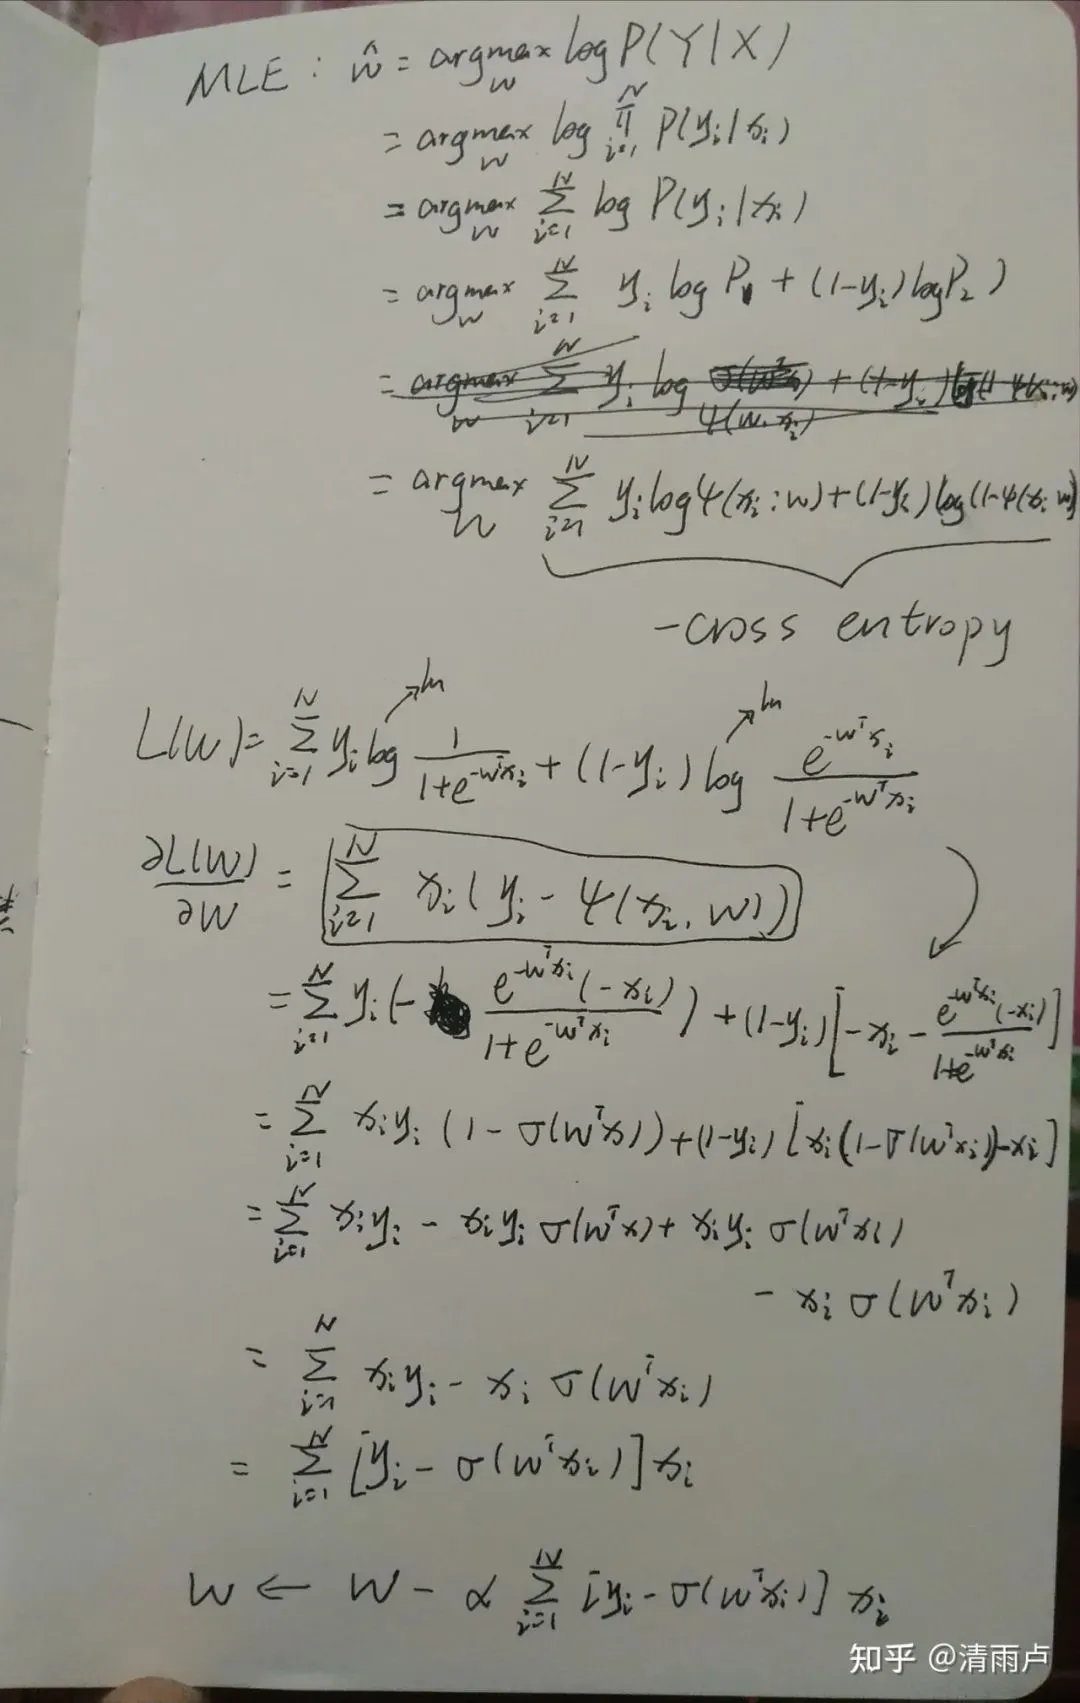 MLE: ŵ = argmax_w log P(Y|X)
= argmax_w log ∏_{i=1}^{N} P(y_i|x_i)
= argmax_w ∑_{i=1}^{N} log P(y_i|x_i)
= argmax_w ∑_{i=1}^{N} y_i log P_1 + (1-y_i) log P_2)
= argmax_w ∑_{i=1}^{N} y_i log ψ(w, x_i) + (1-y_i) log(1-ψ(x_i; w)
= argmax_w ∑_{i=1}^{N} y_i log ψ(x_i; w) + (1-y_i) log(1-ψ(x_i; w)
-cross entropy
ln ln
L(W) = ∑_{i=1}^{N} y_i log \frac{1}{1+e^{-w^T x_i}} + (1-y_i) log \frac{e^{-w^T x_i}}{1+e^{-w^T x_i}}
\frac{∂L(W)}{∂W} = ∑_{i=1}^{N} x_i (y_i - ψ(x_i, w))
= ∑_{i=1}^{N} y_i (- \frac{e^{-w^T x_i}(-x_i)}{1+e^{-w^T x_i}}) + (1-y_i) [-x_i - \frac{e^{-w^T x_i}(-x_i)}{1+e^{-w^T x_i}}]
= ∑_{i=1}^{N} x_i y_i (1 - σ(w^T x)) + (1-y_i) [x_i (1-σ(w^T x_i)) - x_i]
= ∑_{i=1}^{N} x_i y_i - x_i y_i σ(w^T x) + x_i y_i σ(w^T x_i)
- x_i σ(w^T x_i)
= ∑_{i=1}^{N} x_i y_i - x_i σ(w^T x_i)
= ∑_{i=1}^{N} [y_i - σ(w^T x_i)] x_i
w ← w - α ∑_{i=1}^{N} [y_i - σ(w^T x_i)] x_i
知乎 @清雨卢